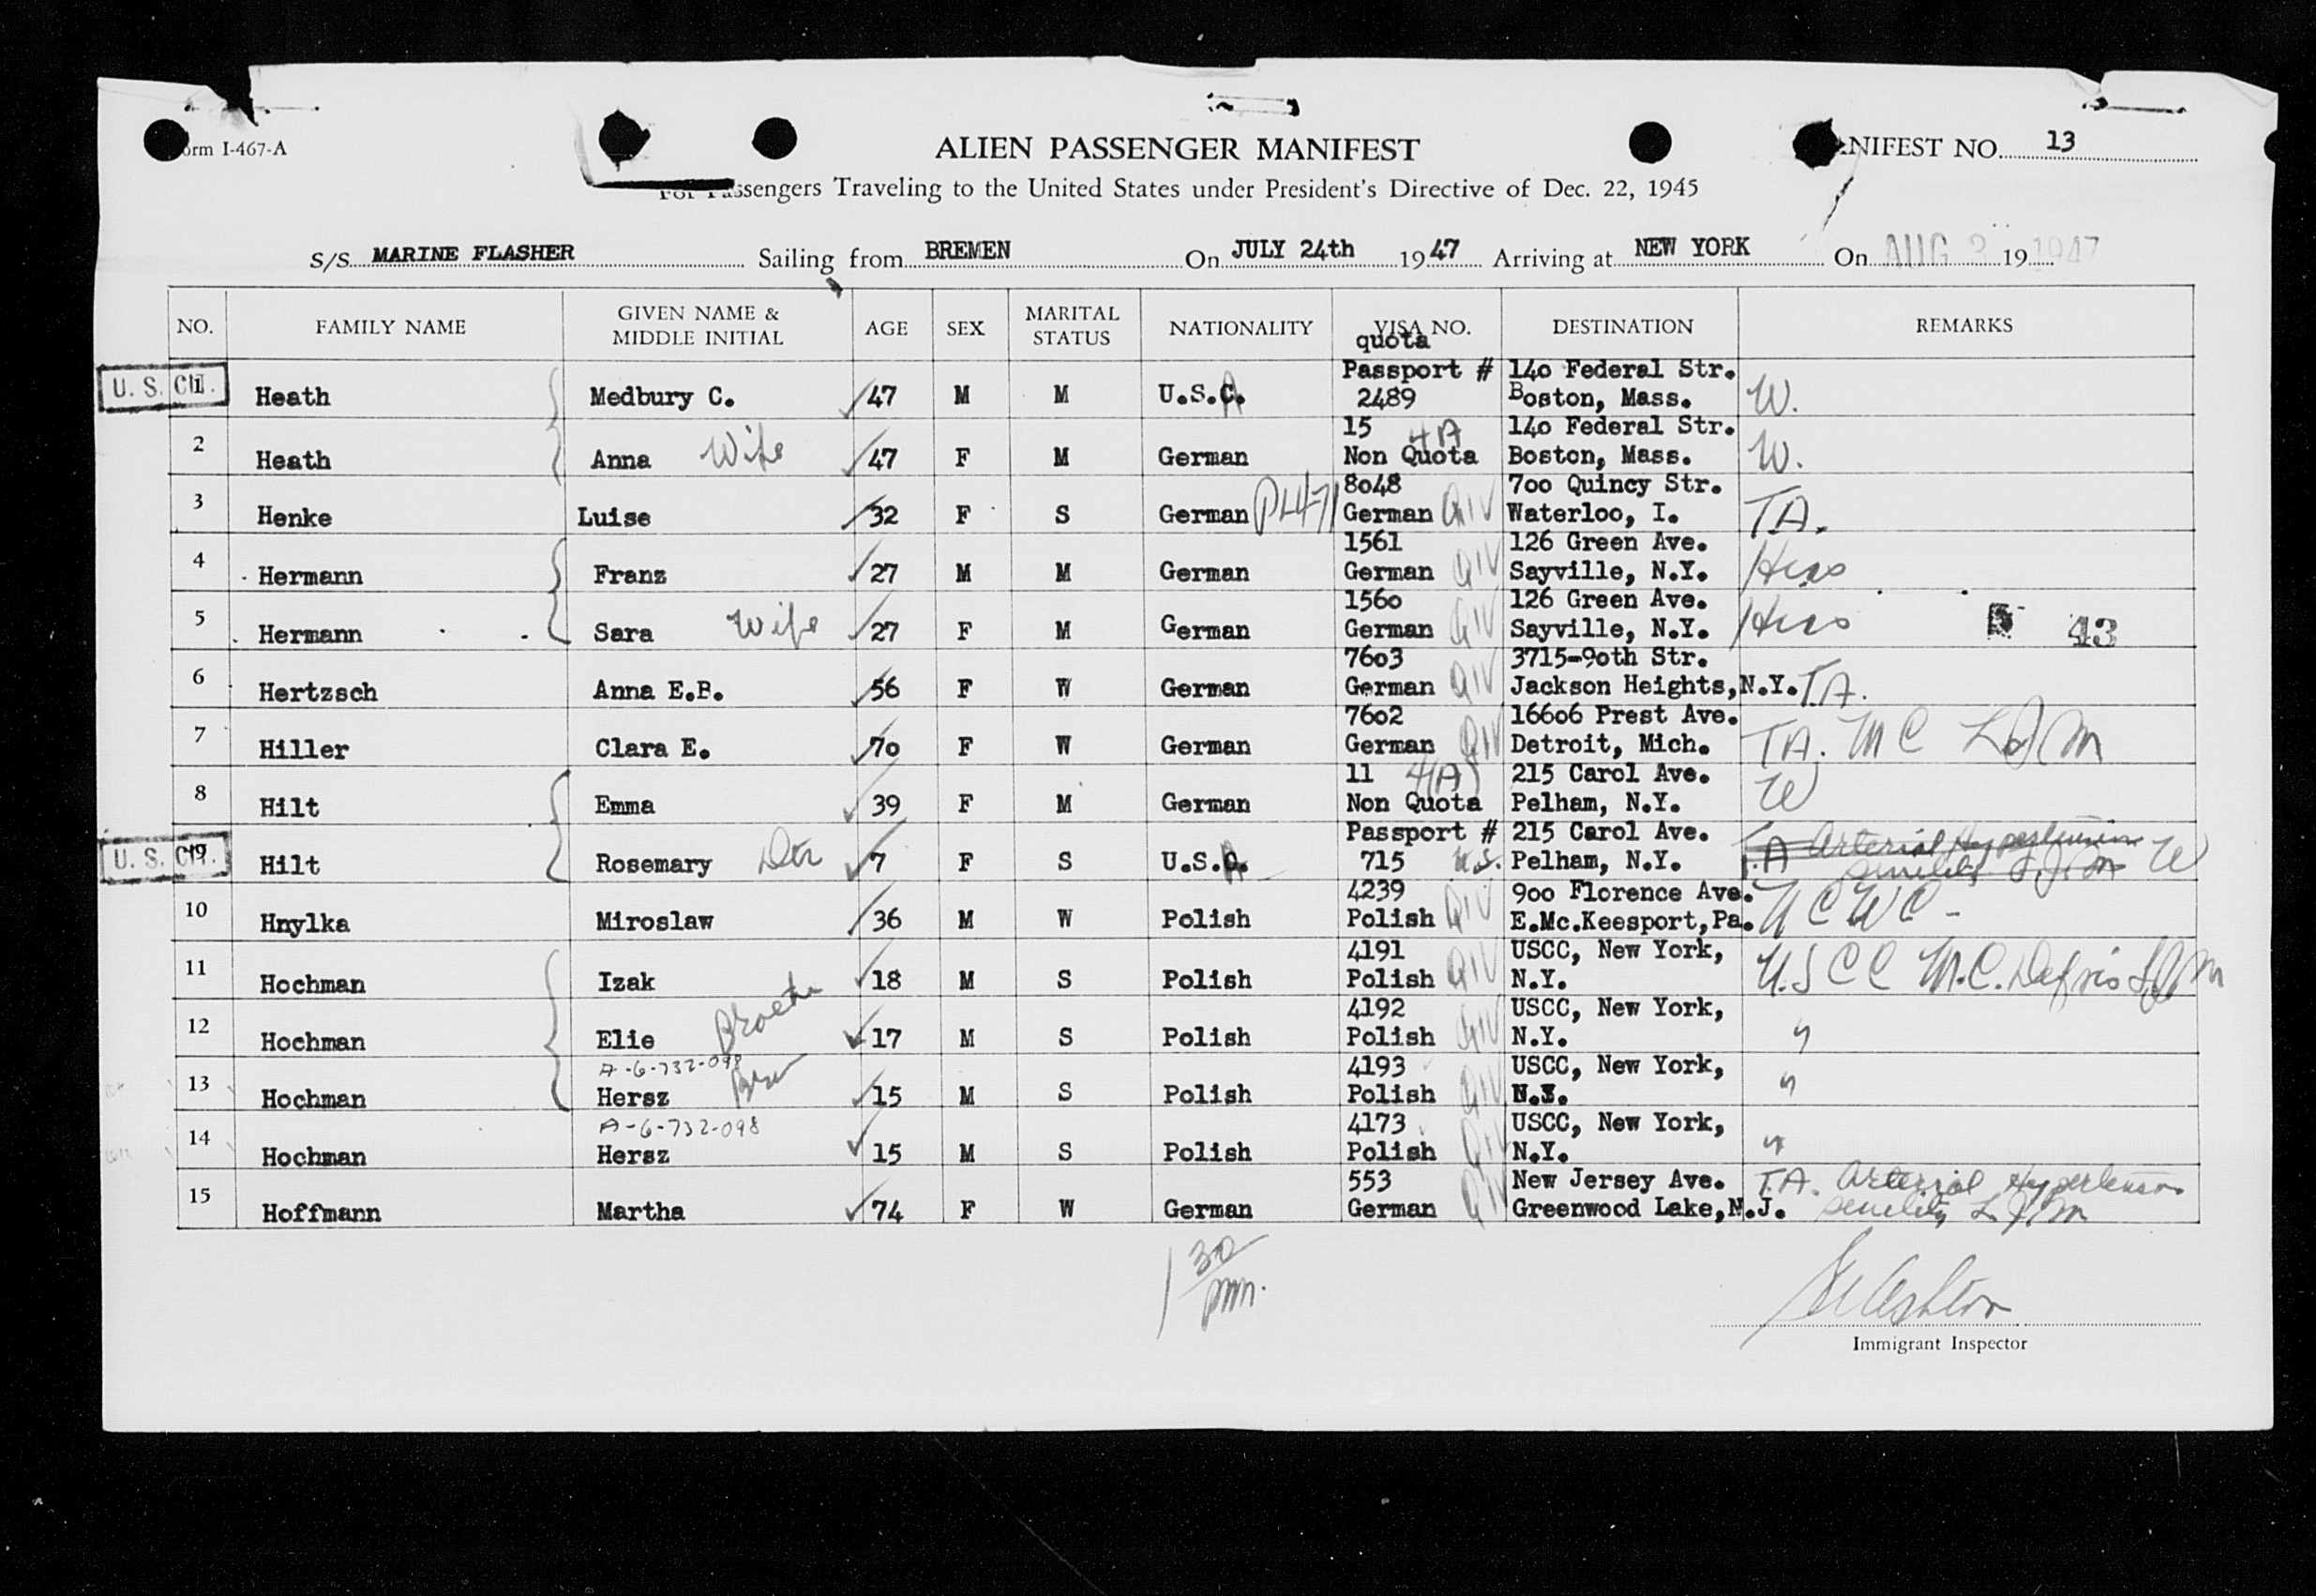 orm I-467-A
ALIEN PASSENGER MANIFEST
ANIFEST NO. 13
For Passengers Traveling to the United States under President's Directive of Dec. 22, 1945
S/S MARINE FLASHER Sailing from BREMEN On JULY 24th 1947 Arriving at NEW YORK On AUG 3 19 1947
NO. FAMILY NAME GIVEN NAME & MIDDLE INITIAL AGE SEX MARITAL STATUS NATIONALITY VISA NO. quota DESTINATION REMARKS
U. S. CIT. 1 Heath Medbury C. 47 M M U.S.C. Passport # 2489 140 Federal Str. Boston, Mass. W.
2 Heath Anna Wife 47 F M German 15 4A Non Quota 140 Federal Str. Boston, Mass. W.
3 Henke Luise 32 F S German PL471 8048 German QIV 700 Quincy Str. Waterloo, I. TA.
4 Hermann Franz 27 M M German 1561 German QIV 126 Green Ave. Sayville, N.Y. Hias
5 Hermann Sara Wife 27 F M German 1560 German QIV 126 Green Ave. Sayville, N.Y. Hias 43
6 Hertzsch Anna E.B. 56 F W German 7603 German QIV 3715-90th Str. Jackson Heights, N.Y. T.A.
7 Hiller Clara E. 70 F W German 7602 German QIV 16606 Prest Ave. Detroit, Mich. TA. MC
8 Hilt Emma 39 F M German 11 4(A) Non Quota 215 Carol Ave. Pelham, N.Y. W
U. S. CIT. 9 Hilt Rosemary Dtr 7 F S U.S.C. Passport # 715 U.S. 215 Carol Ave. Pelham, N.Y. T.A Arterial Hypertension senility W
10 Hnylka Miroslaw 36 M W Polish 4239 Polish QIV 900 Florence Ave. E.Mc.Keesport,Pa. UCWC -
11 Hochman Izak 18 M S Polish 4191 Polish QIV USCC, New York, N.Y. U.SCC M.C.
12 Hochman Elie Brother 17 M S Polish 4192 Polish QIV USCC, New York, N.Y. "
13 Hochman A-6-732-098 Hersz Bro 15 M S Polish 4193 Polish QIV USCC, New York, N.Y. "
14 Hochman A-6-732-098 Hersz 15 M S Polish 4173 Polish QIV USCC, New York, N.Y. "
15 Hoffmann Martha 74 F W German 553 German QIV New Jersey Ave. Greenwood Lake, N.J. T.A. Arterial Hypertension senility
1 30 pm.
Immigrant Inspector